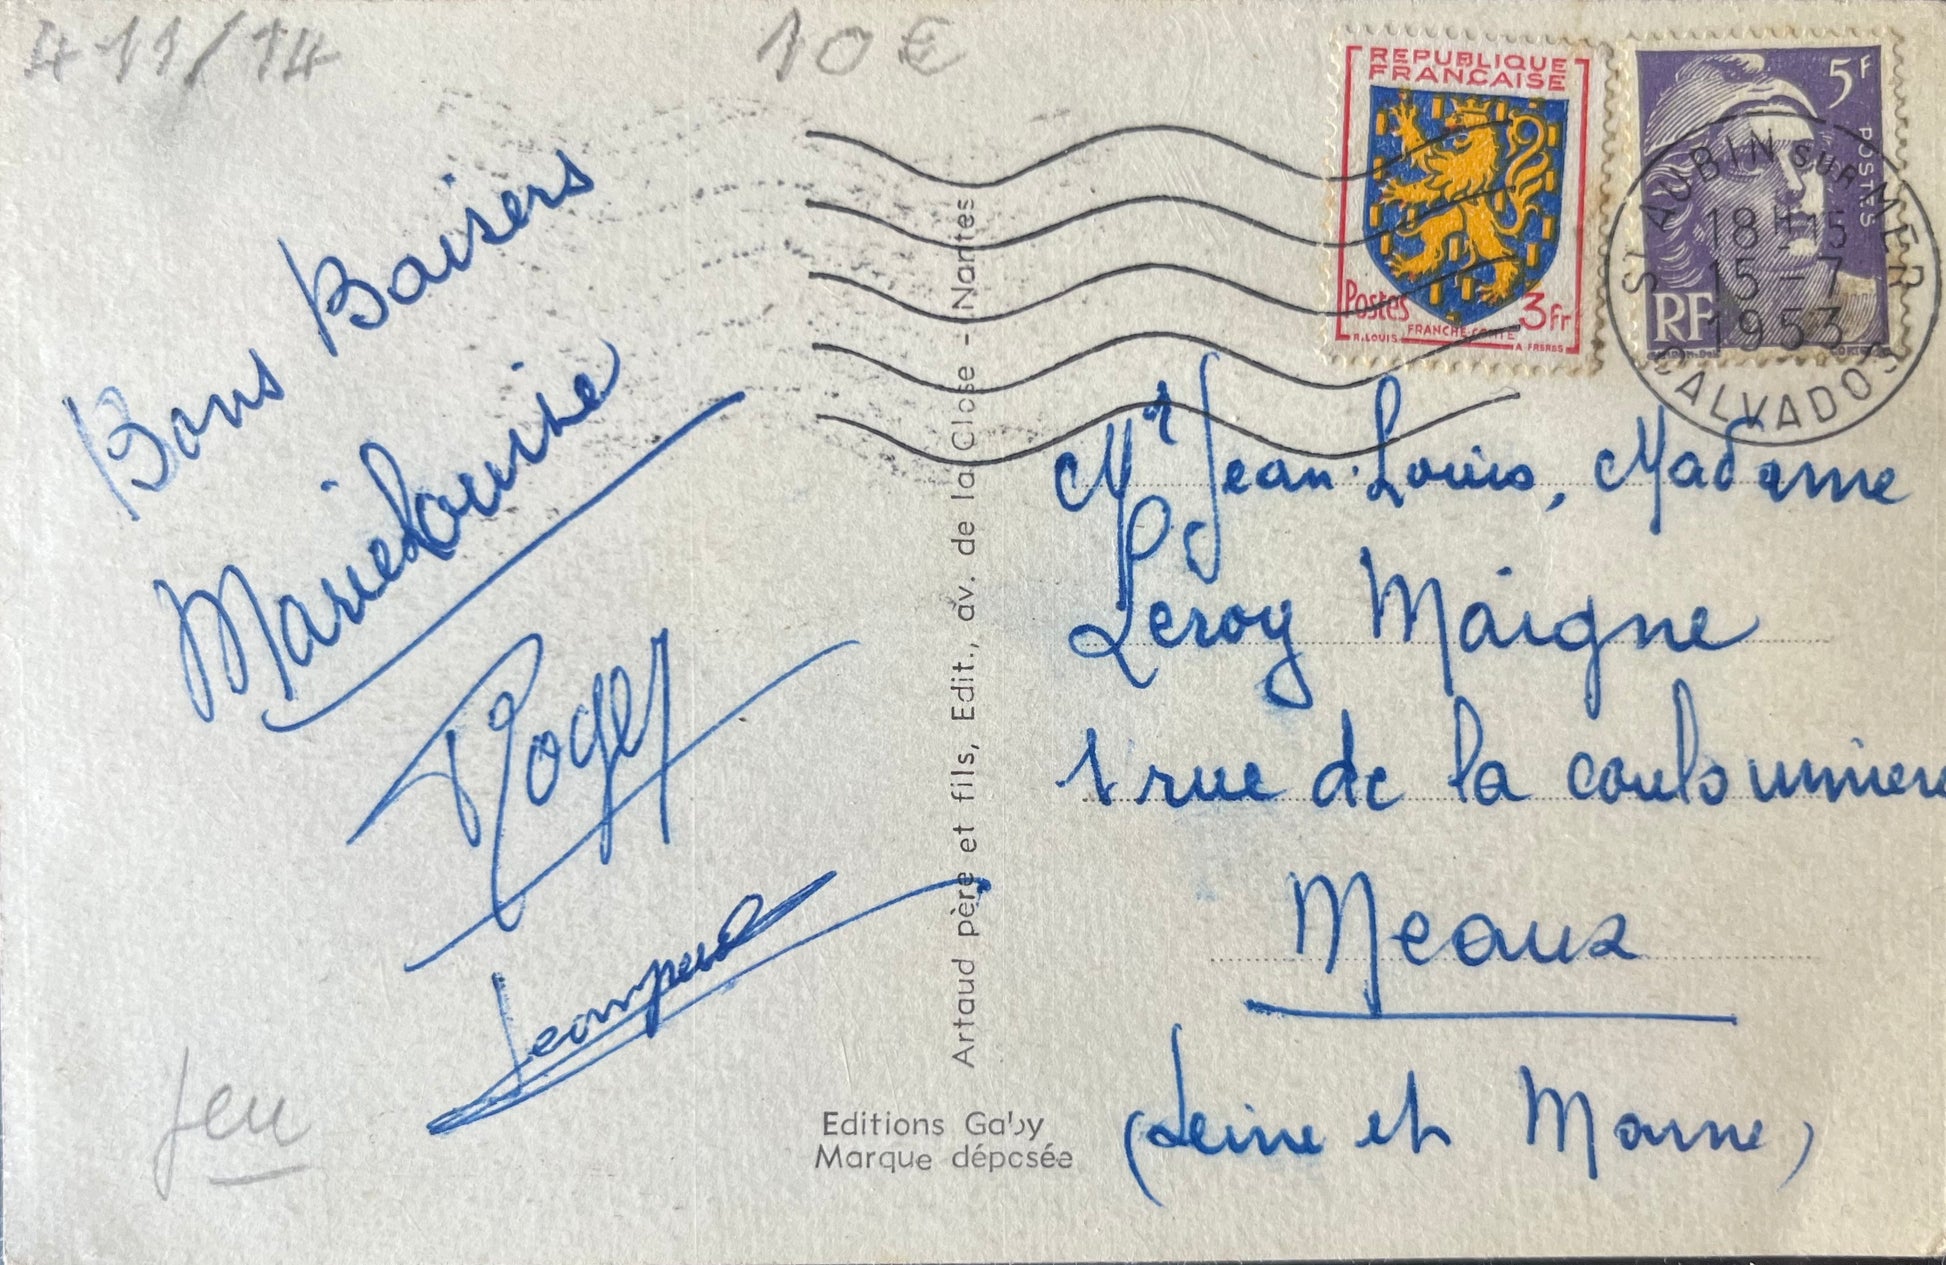 411/14
10€
REPUBLIQUE
FRANÇAISE
Postes 3fr
FRANCHE-COMTÉ
R. LOUIS
A FRERES
5F
POSTES
RF
ST AUBIN sur MER
18H15
15-7
1953
CALVADOS
Bons Baisers
Marielouise
Roger
Artaud père et fils, Edit., av. de la Close - Nantes
Editions Gaby
Marque déposée
Jeu
Mr Jean-Louis, Madame
Leroy Maigne
1 rue de la coulommiere
Meaux
(Seine et Marne)